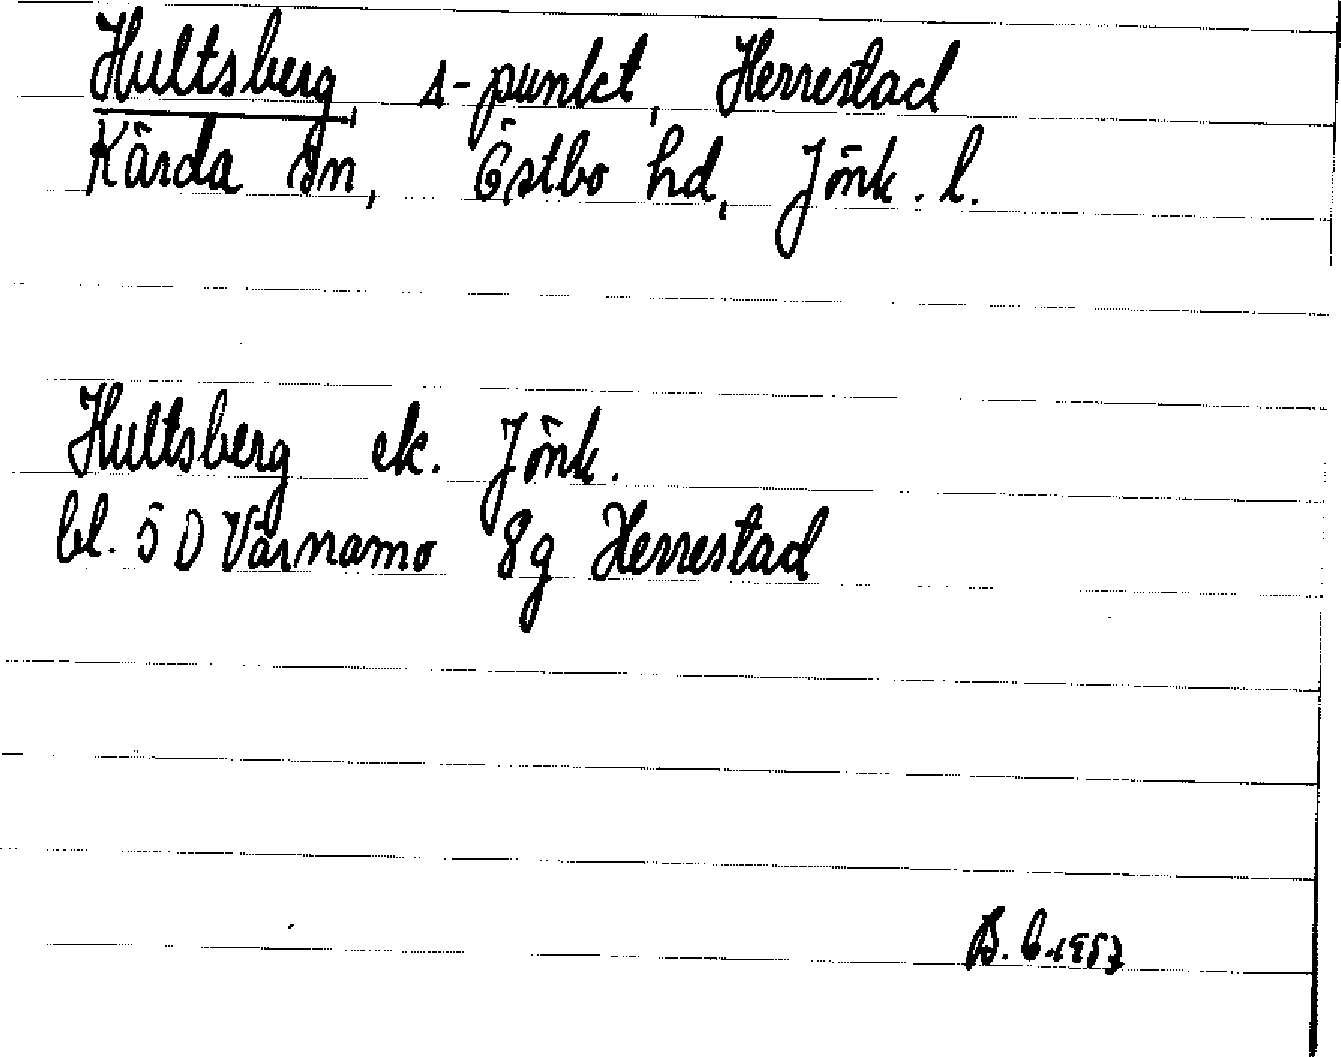 Hultsberg, s-punkt, Herrestad
Kärda sn, Östbo hd, Jönk. l.
Hultsberg ek. Jönk.
bl. 5 D Värnamo 8g Herrestad